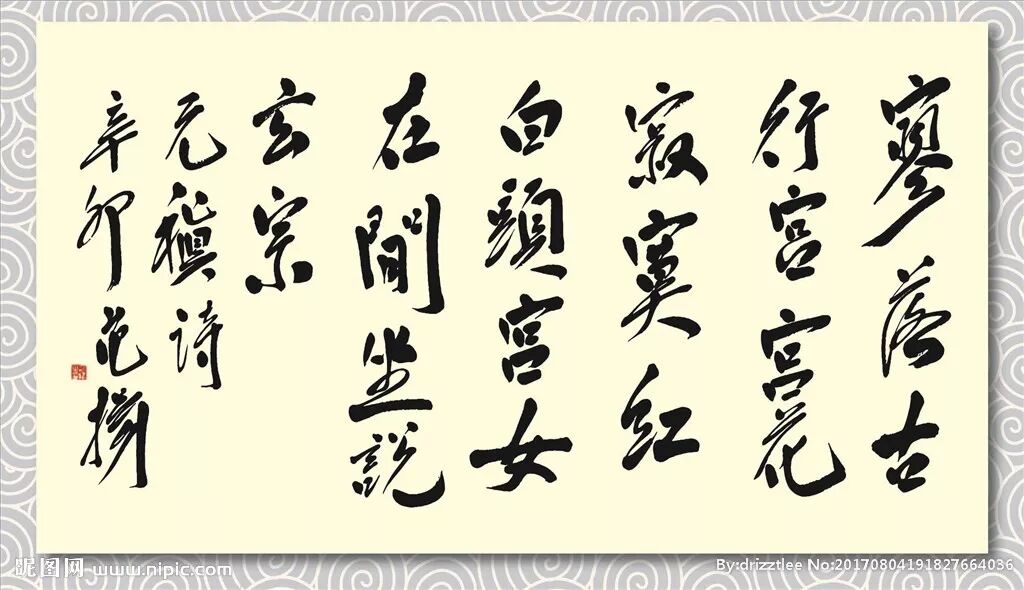 寥落古
行宫宫花
寂寞红
白頭宫女
在閒坐説
玄宗
元稹诗
辛卯范擴
昵图网 www.nipic.com
By:drizztlee No:20170804191827664036